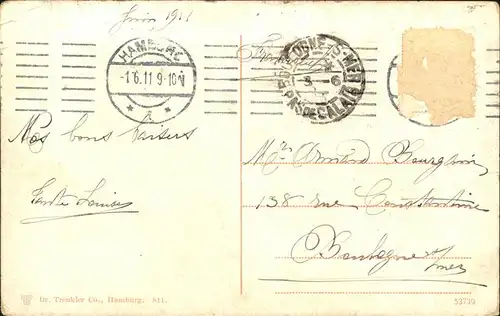 Juin 1911
HAMBURG
-1.6.11 9-10 V
BOULOGNE-S-MER
PAS DE CALAIS
Nos bons baisers
Louise
Mr Armand Bourgain
138 rue Constantine
Boulogne s/mer
Dr. Trenkler Co., Hamburg. 811.
53739